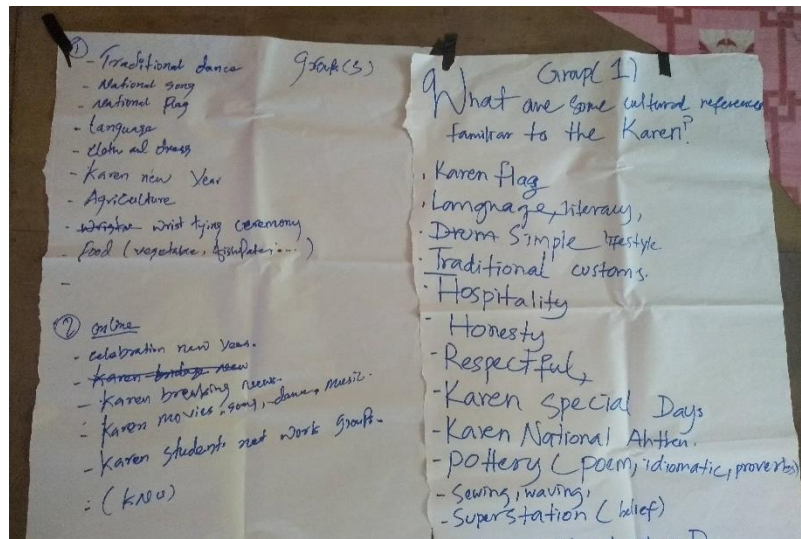 ① - Traditional dance
Group (3)
- National song
- National flag
- Language
- cloth and dress
- Karen new Year
- Agriculture
- wrist tying ceremony
- food (vegetable, fishpaste, ... )
-
② online
- celebration new year.
- Karen breaking news.
- Karen movies, song, dance, music.
- Karen students net work groups.
- (KNU)
Group (1)
What are some cultural references
familiar to the Karen?
- Karen flag
- Language, literacy,
- Drum Simple lifestyle
- Traditional customs.
- Hospitality
- Honesty
- Respectful,
- Karen Special Days
- Karen National Ahthen.
- Pottery (poem, idiomatic, proverbs)
- Sewing, waving,
- Superstation (belief)